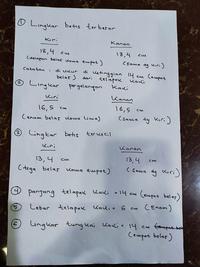 ① Lingkar betis terbesar
Kiri Kanan
18,4 cm 18,4 cm
(delapan belas koma empat) (sama dg kiri)
Catatan : di ukur di ketinggian 14 cm (empat
belas) dari telapak kaki
② Lingkar pergelangan kaki
Kiri Kanan
16,5 cm 16,5 cm
(enam belas koma lima) (sama dg kiri)
③ Lingkar betis terkecil
Kiri Kanan
13,4 cm 13,4 cm
(tiga belas koma empat) (sama dg kiri)
④ panjang telapak kaki = 14 cm (empat belas)
⑤ Lebar telapak kaki = 6 cm (Enam)
⑥ Lingkar tungkai kaki = 14 cm
(empat belas)